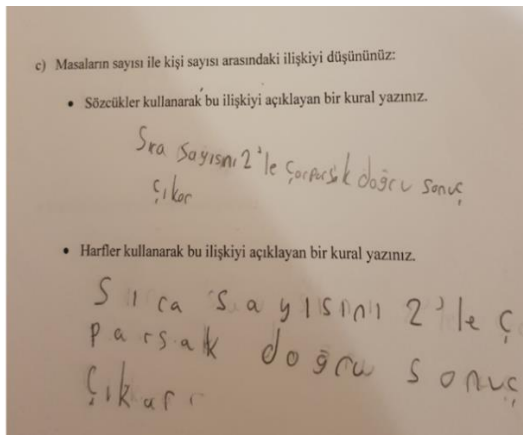 c) Masaların sayısı ile kişi sayısı arasındaki ilişkiyi düşününüz:
• Sözcükler kullanarak bu ilişkiyi açıklayan bir kural yazınız.
Sıra sayısnı 2'le çarparsak doğru sonuç
çıkar
• Harfler kullanarak bu ilişkiyi açıklayan bir kural yazınız.
Sıra sayısını 2'le ç
parsak doğru sonuç
çıkarr